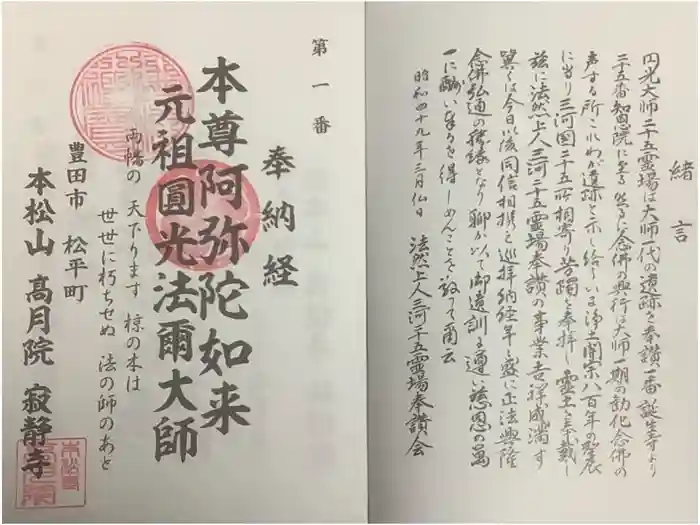 緒言
円光大師二十五霊場は大師一代の遺跡を奉讃一番誕生寺より
二十五番知恩院に至る 然るに念佛の興行は大師一期の勧化念佛の
声する所これわが遺跡と示し給う いま浄土開宗八百年の聖辰
に当り三河国二十五ヶ所相寄り芳躅を奉拝し霊土を奉戴し
茲に法然上人三河二十五霊場奉讃の事業吉祥成満す
冀くは今日以後同信相携え巡拝納経年と密に正法興隆
念佛弘通の勝縁となり聊か以て御遺訓に適い慈恩の萬
一に酬い奉るを得しめんことを 敬って爾云
昭和四十九年三月仏日 法然上人三河二十五霊場奉讃会
第一番
奉納経
本尊阿弥陀如来
元祖圓光法爾大師
両幡の 天下ります 椋の木は
世世に朽ちせぬ 法の師のあと
豊田市 松平町
本松山 高月院 寂静寺